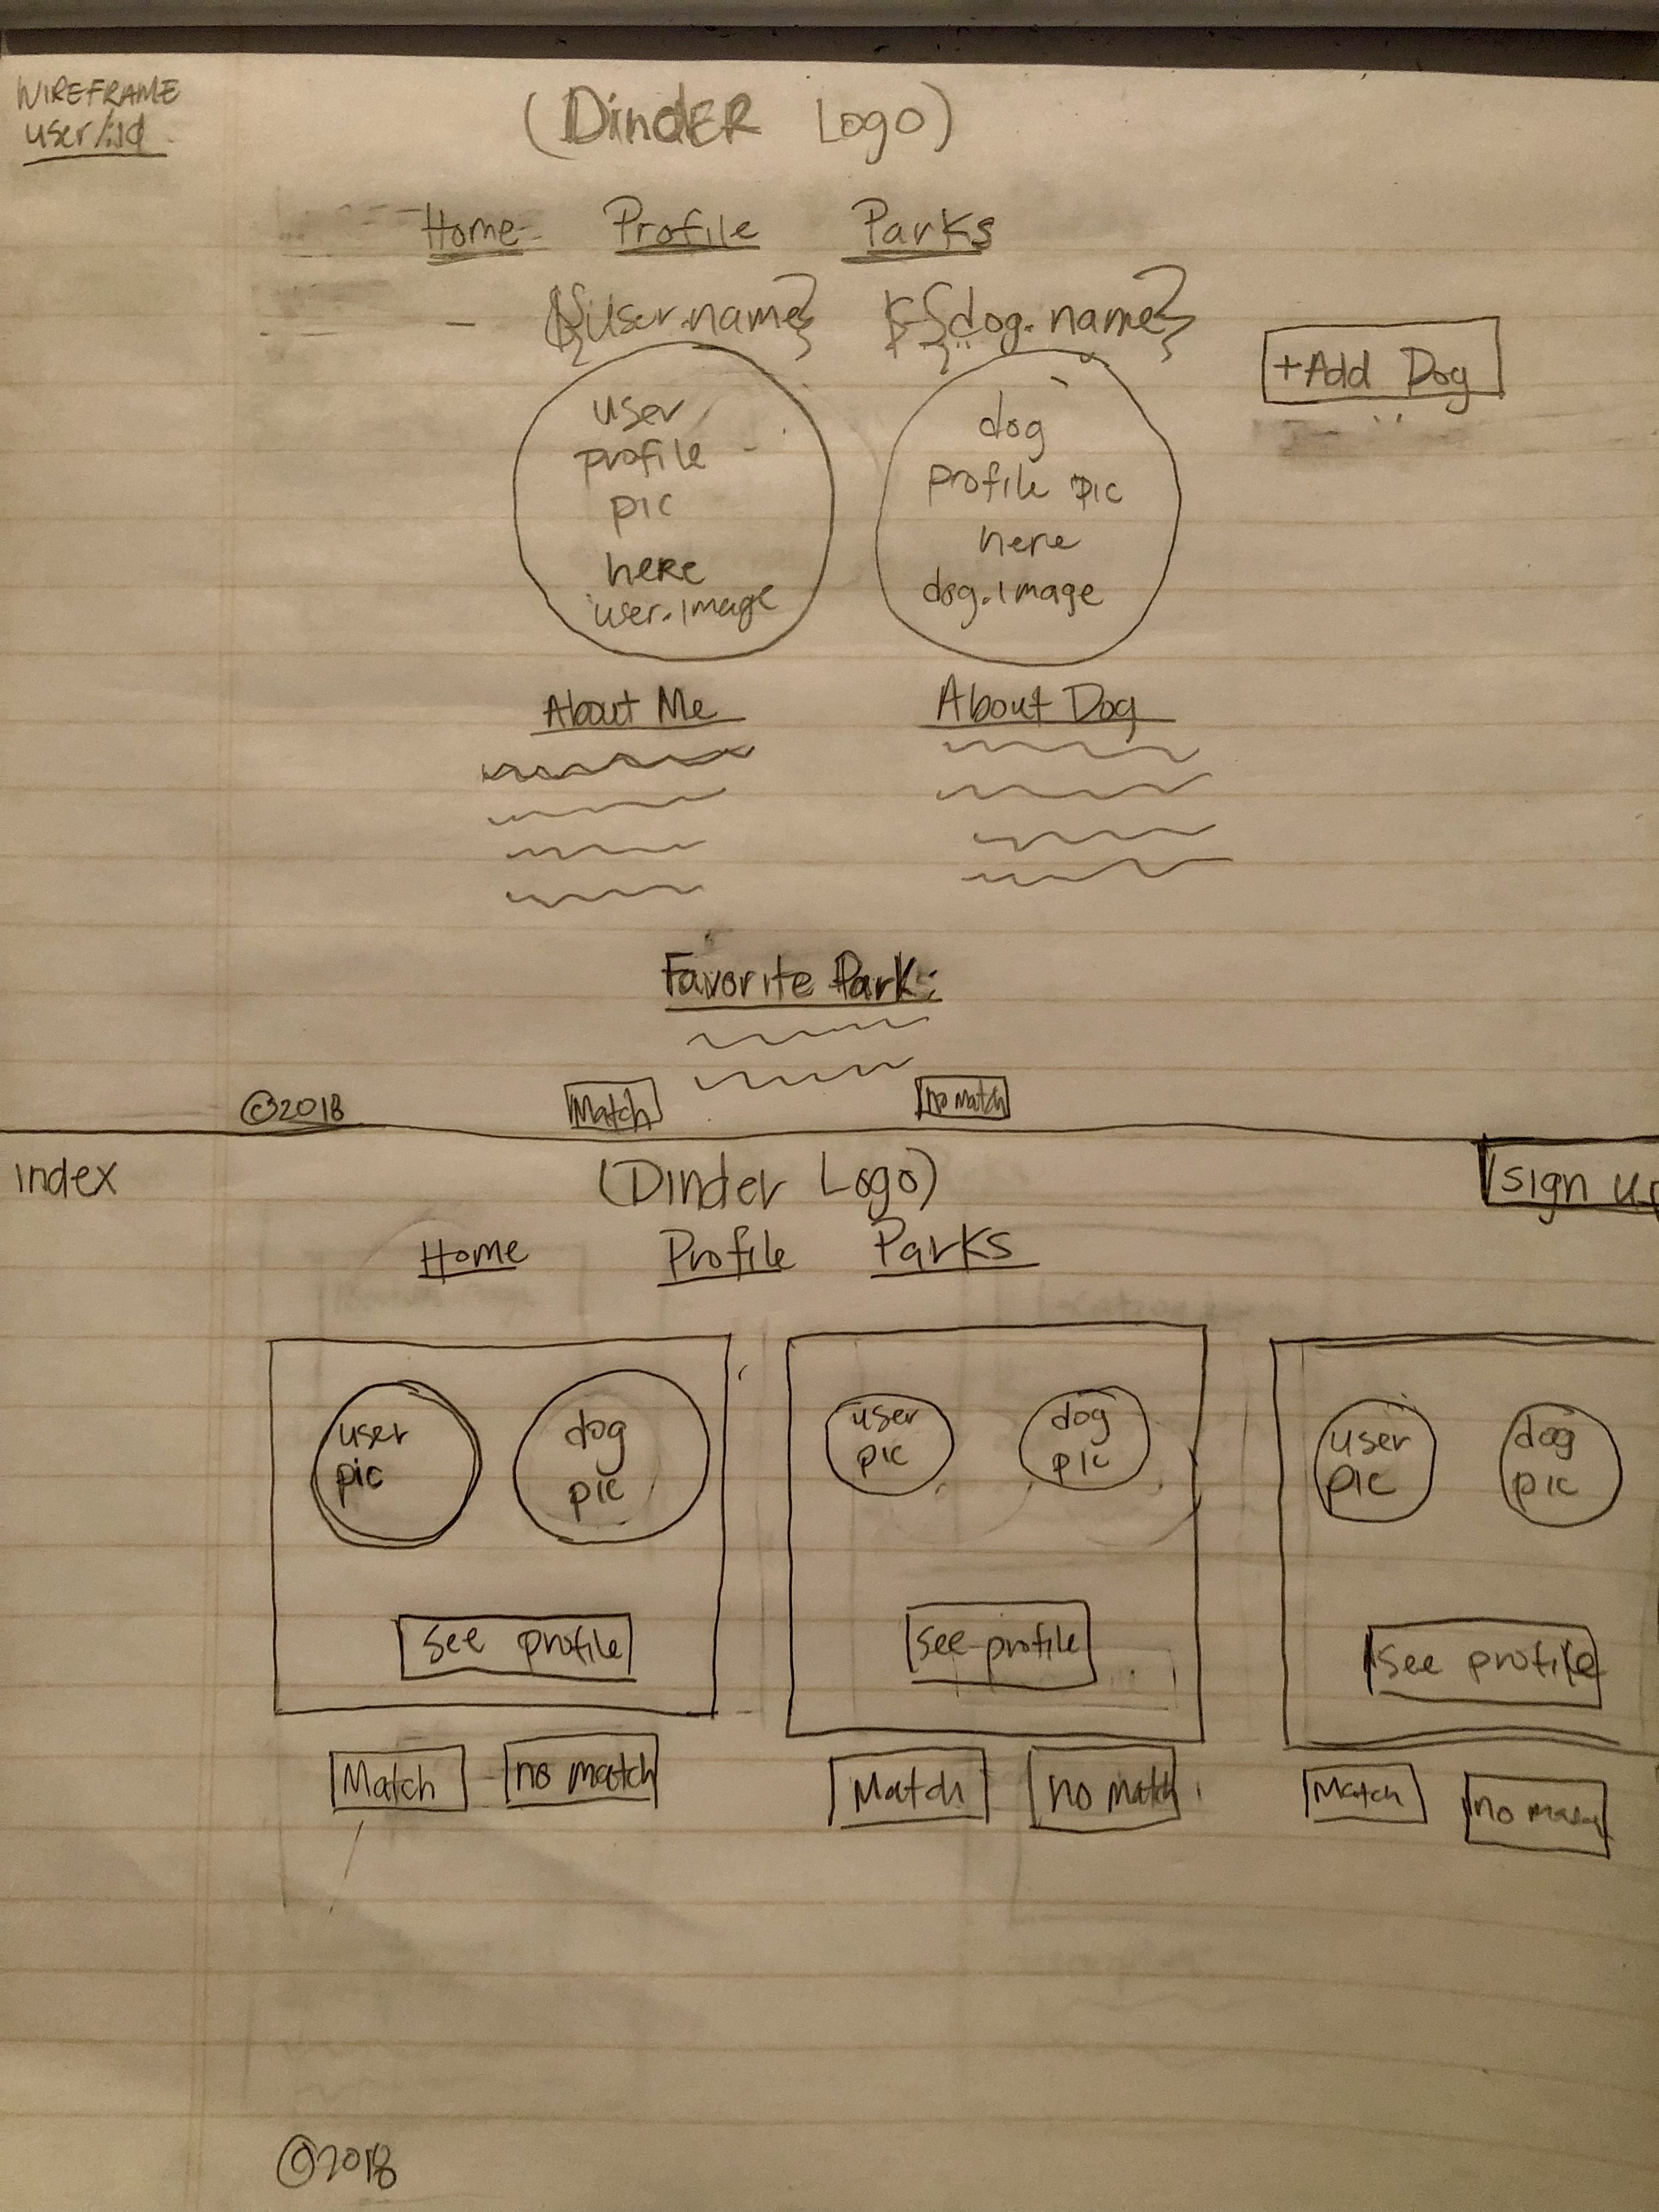 WIREFRAME
user/:id
(DindER Logo)
Home Profile Parks
${user.name} ${dog.name}
+Add Dog
user
profile
pic
here
user.image
dog
profile pic
here
dog.image
About Me About Dog
Favorite Park:
©2018 Match no match
index
(Dinder Logo)
sign up
Home Profile Parks
user
pic
dog
pic
see profile
Match no match
user
pic
dog
pic
see profile
Match no match
user
pic
dog
pic
see profile
Match no
©2018